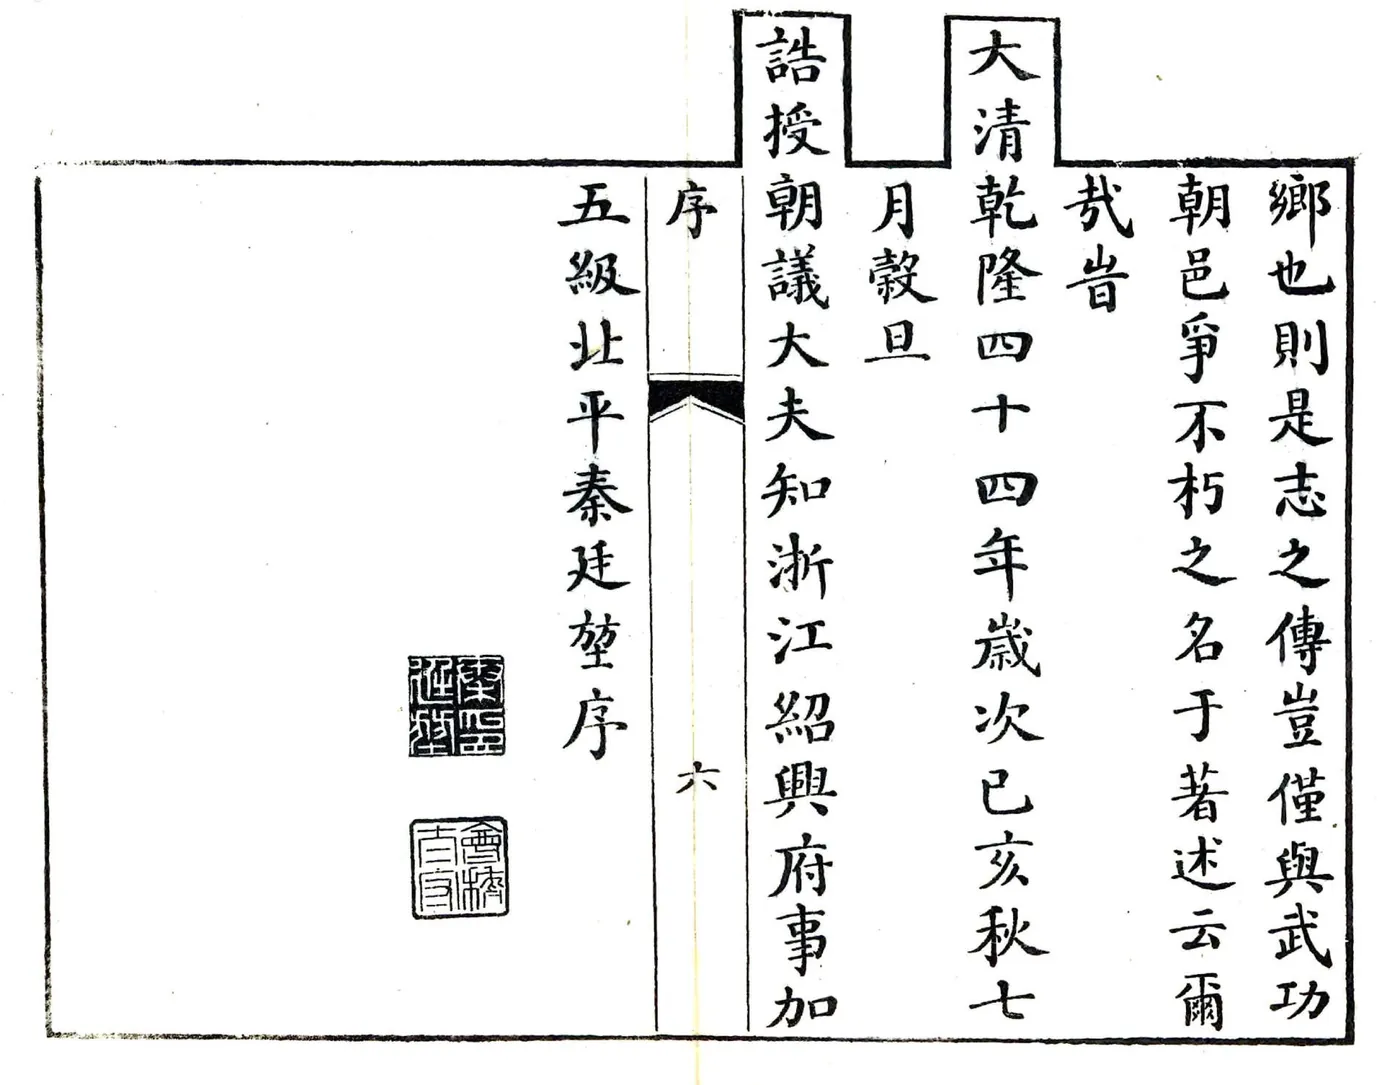 鄉也則是志之傳豈僅與武功
朝邑爭不朽之名于著述云爾
哉旹
大清乾隆四十四年歲次己亥秋七
月穀旦
誥授朝議大夫知浙江紹興府事加
序
六
五級北平秦廷堃序
秦印
廷堃
會稽
太守